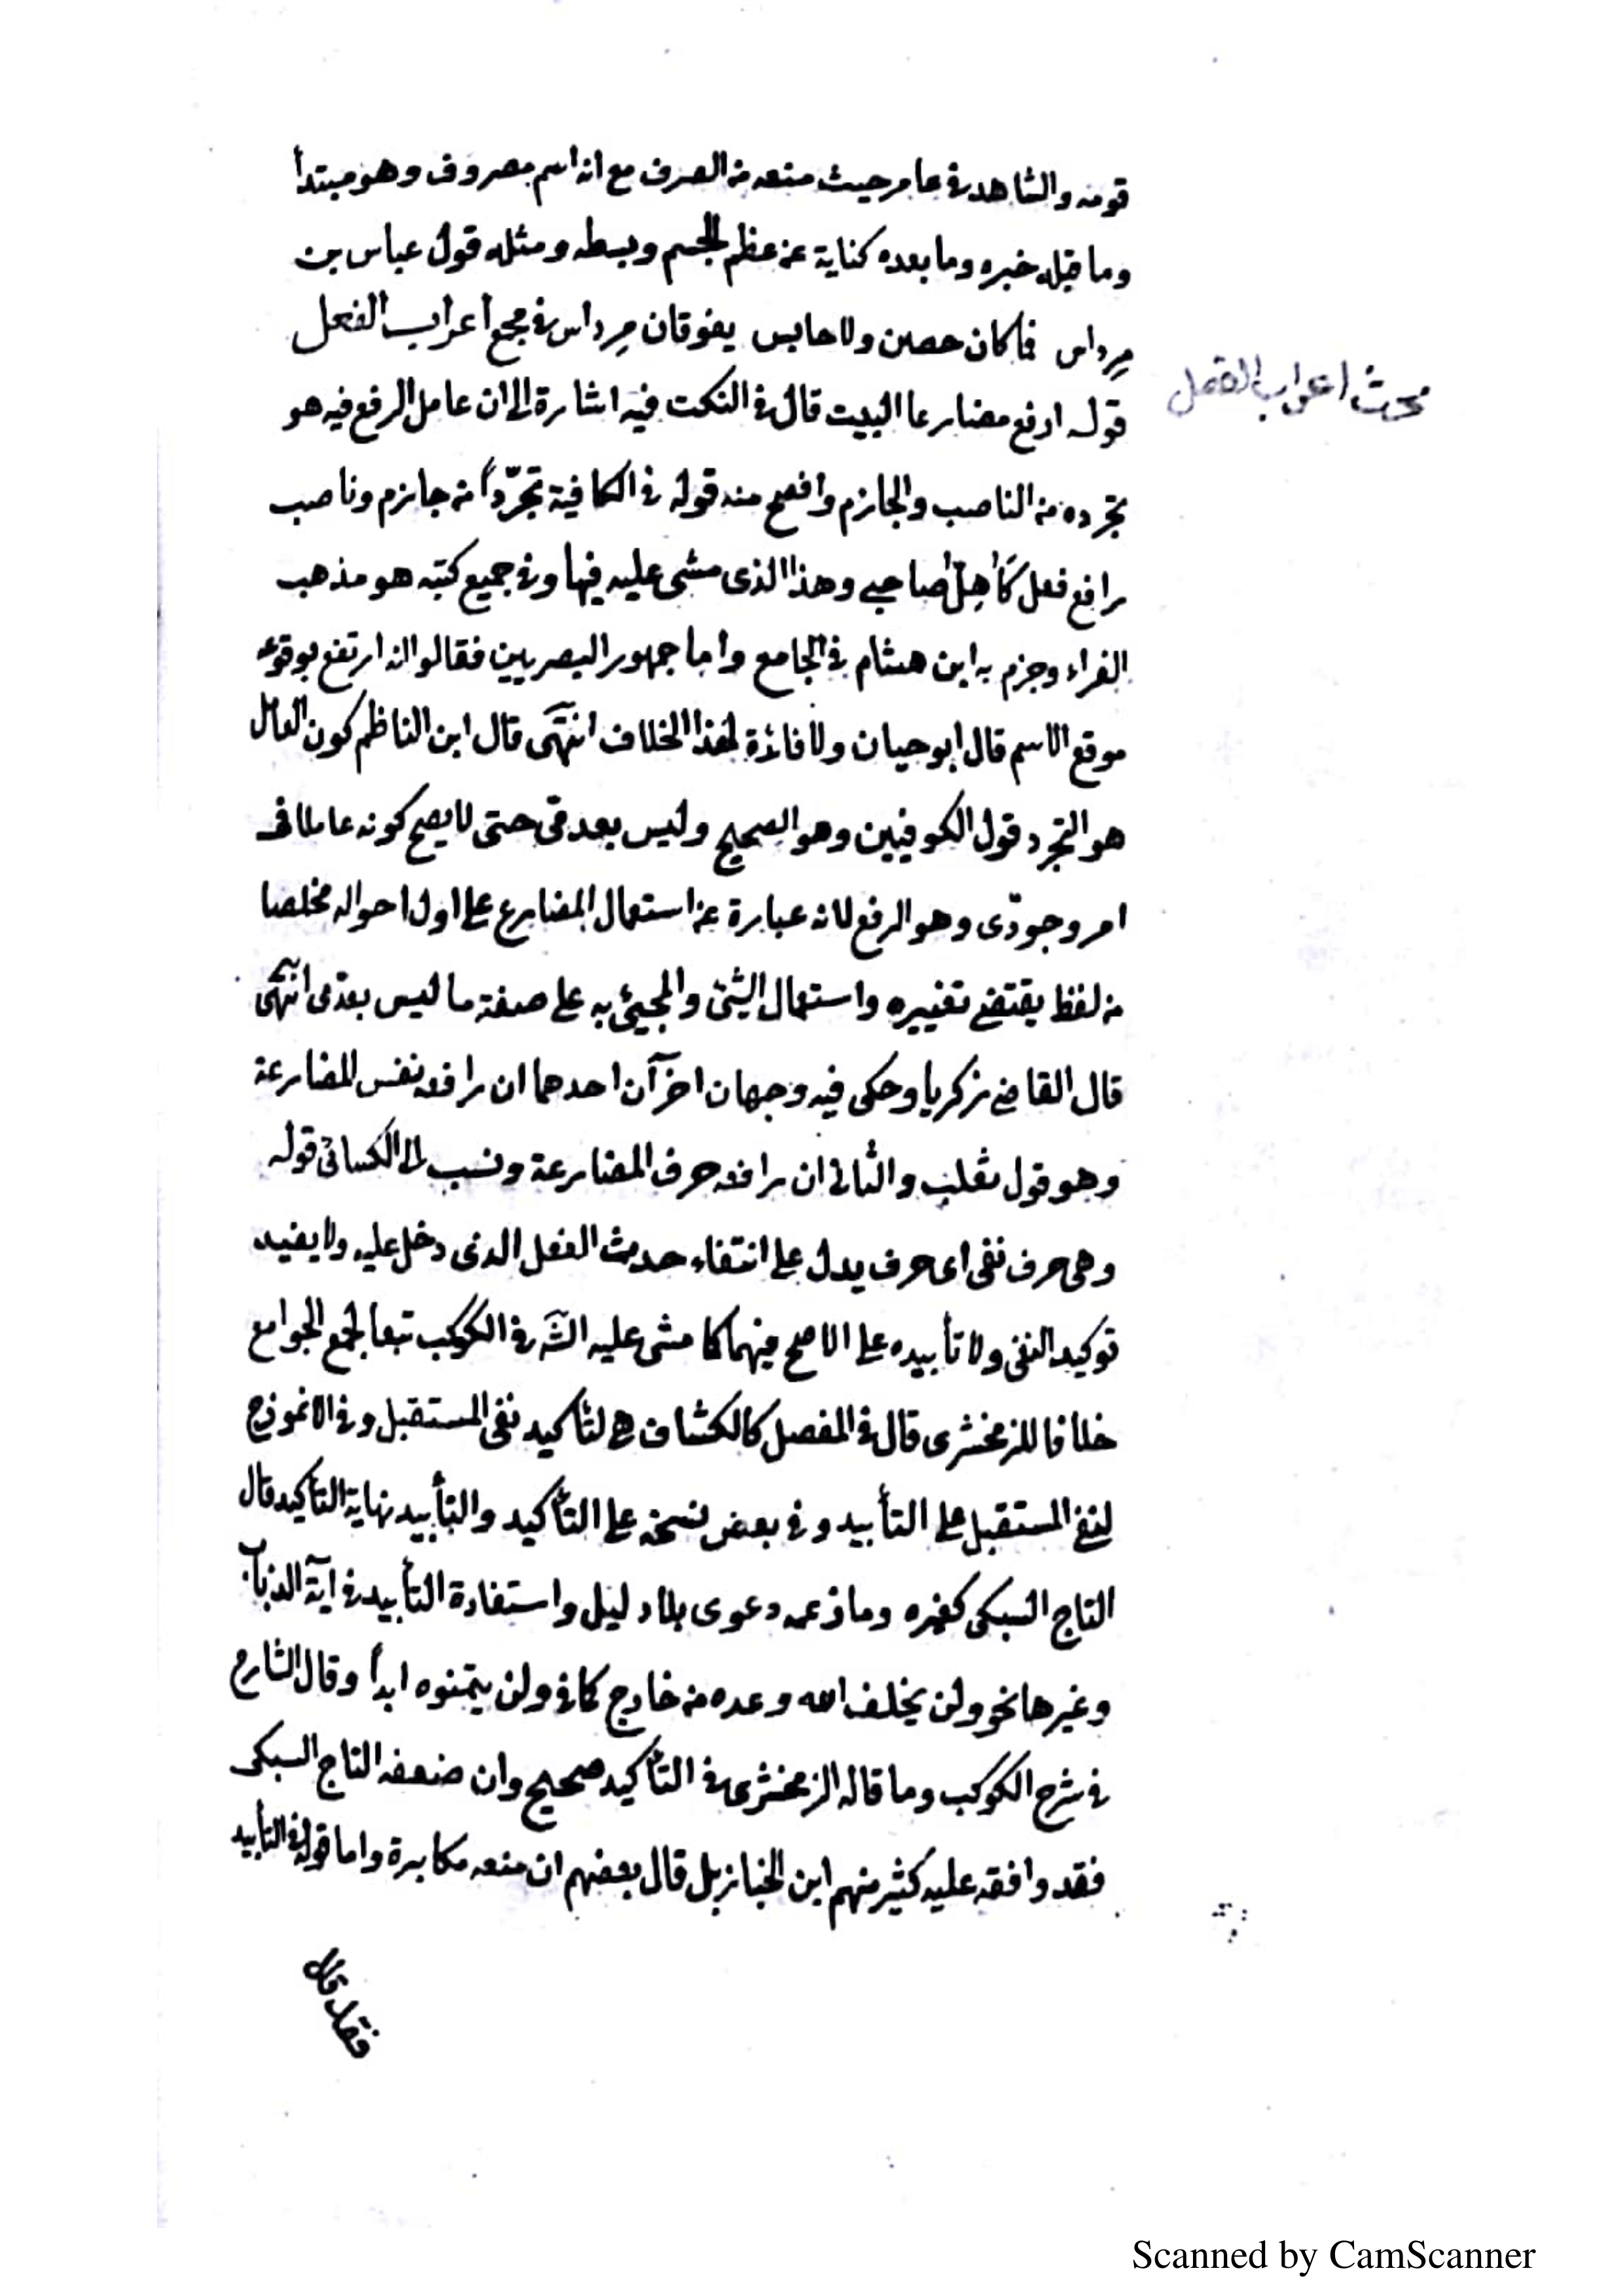 قومه والشاهد في عامر حيث منعه من الصرف مع انه اسم مصروف وهو مبتدأ
وما قبله خبره وما بعده كناية عن عظم الجسم وبسطه ومثله قول عباس بن
مِرداس فما كان حصن ولا حابس يفوقان مِرداس في مجمع اعراب الفعل
مبحث اعراب الفعل
قوله ارفع مضارعا البيت قال في النكت فيه اشارة الى ان عامل الرفع فيه هو
تجرده من الناصب والجازم وافصح منه قوله في الكافية تجرّداً من جازم وناصب
رافع فعل كَاَهِلّ صاحبي وهذا الذى مشى عليه فيها وفي جميع كتبه هو مذهب
الفراء وجزم به ابن هشام في الجامع واما جمهور البصريين فقالوا انه ارتفع بوقوعه
موقع الاسم قال ابو حيان ولا فائدة لهذا الخلاف انتهى قال ابن الناظم كون العامل
هو التجرد قول الكوفيين وهو الصحيح وليس بعدمى حتى لا يصح كونه عاملا في
امر وجودّى وهو الرفع لانه عبارة عن استعمال المضارع على اول احواله مخلصا
من لفظ يقتضي تغييره واستعمال الشئ والمجيئ به على صفة ما ليس بعدمى انتهى
قال القاضي زكريا وحكى فيه وجهان اخرآن احدهما ان رافعه نفس المضارعة
وهو قول ثعلب والثاني ان رافعه حرف المضارعة ونسب الى الكسائى قوله
وهى حرف نفى اى حرف يدل على انتفاء حدث الفعل الذى دخل عليه ولا يفيد
توكيد النفى ولا تأبيده على الاصح فيهما كما مشى عليه الشَّ في الكوكب تبعا لجمع الجوامع
خلافا للزمخشرى قال في المفصل كالكشاف هي لتأكيد نفى المستقبل وفي الانموذج
لنفي المستقبل على التأبيد وفي بعض نسخه على التأكيد والتأبيد نهاية التأكيد قال
التاج السبكى كغيره وما زعمه دعوى بلا دليل واستفادة التأبيد في آية الذباب
وغيرها نحو ولن يخلف الله وعده من خارج كما في ولن يتمنوه ابداً وقال الشارح
في شرح الكوكب وما قاله الزمخشرى في التأكيد صحيح وان ضعفه التاج السبكى
فقد وافقه عليه كثير منهم ابن الخباز بل قال بعضهم ان منعه مكابرة واما قوله في التأبيد
فقد قال
Scanned by CamScanner